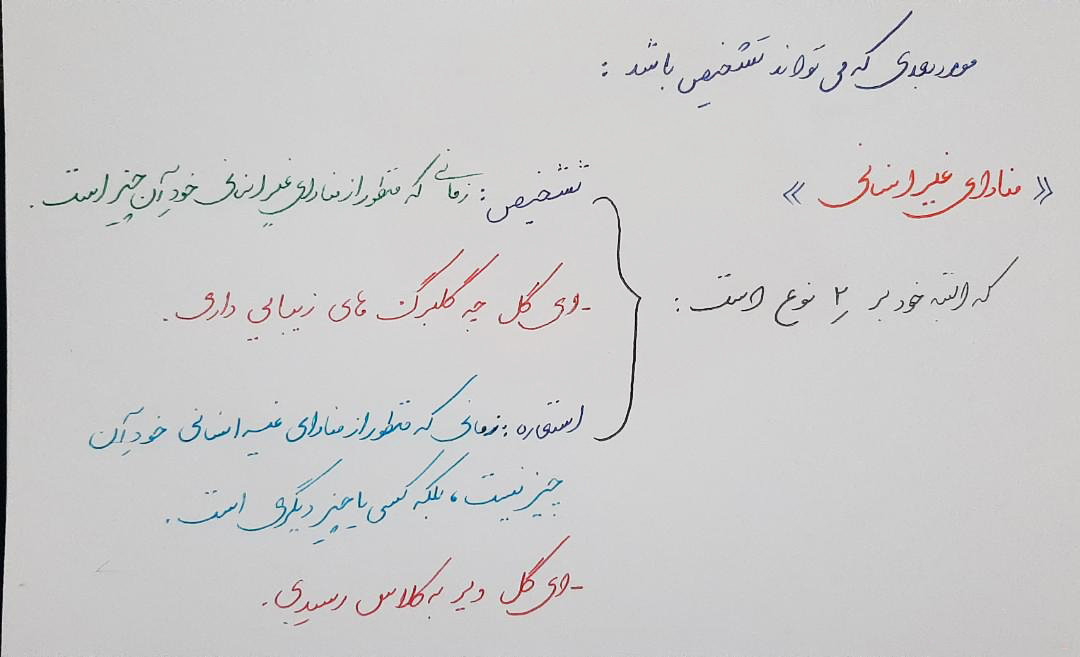 مورد بعدی که می تواند تشخیص باشد :
« منادای غیر انسانی »
که البته خود بر ۲ نوع است :
تشخیص : زمانی که منظور از منادای غیر انسانی خودِ آن چیز است .
- ای گل چه گلبرگ های زیبایی داری .
استعاره : زمانی که منظور از منادای غیر انسانی خودِ آن
چیز نیست ، بلکه کسی یا چیز دیگری است .
- ای گل دیر به کلاس رسیدی .